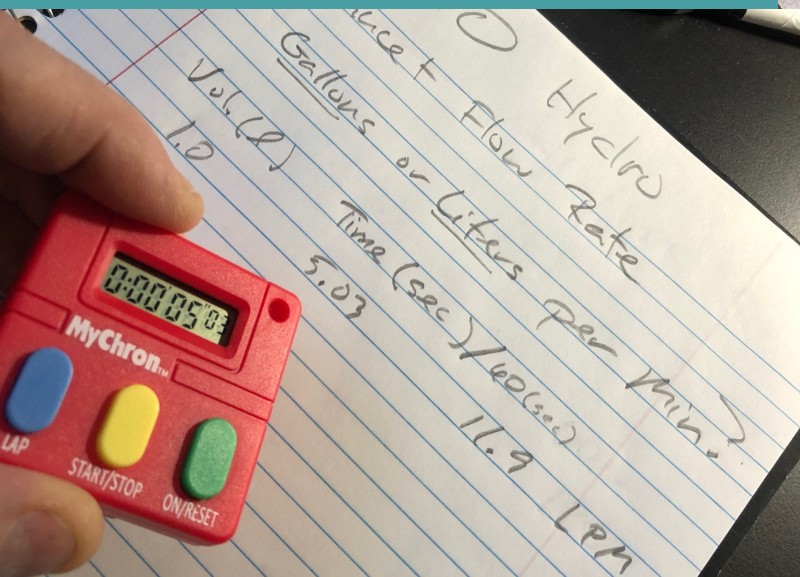 Hydro
Flow Rate
Gallons or Liters per Min?
Vol. (l) Time (sec)/60(sec)
1.0 5.03 11.9 LPM
0:00'05"03
MyChron™
LAP START/STOP ON/RESET